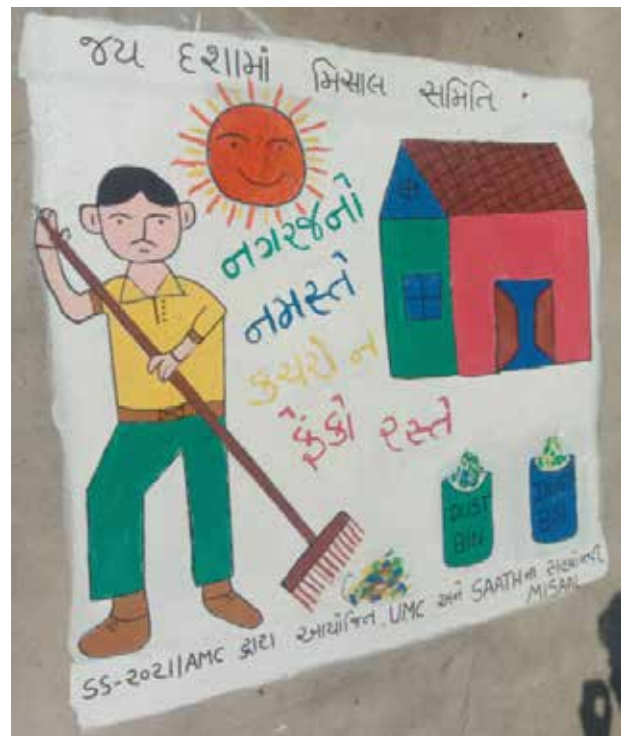 જય દશામાં મિસાલ સમિતિ.
નગરજનો
નમસ્તે
કચરો ન
ફેંકો રસ્તે
DUST
BIN
DUST
BIN
SS-૨૦૨1/AMC દ્વારા આયોજિત. UMC અને SAATHના સહયોગથી
MISAAL